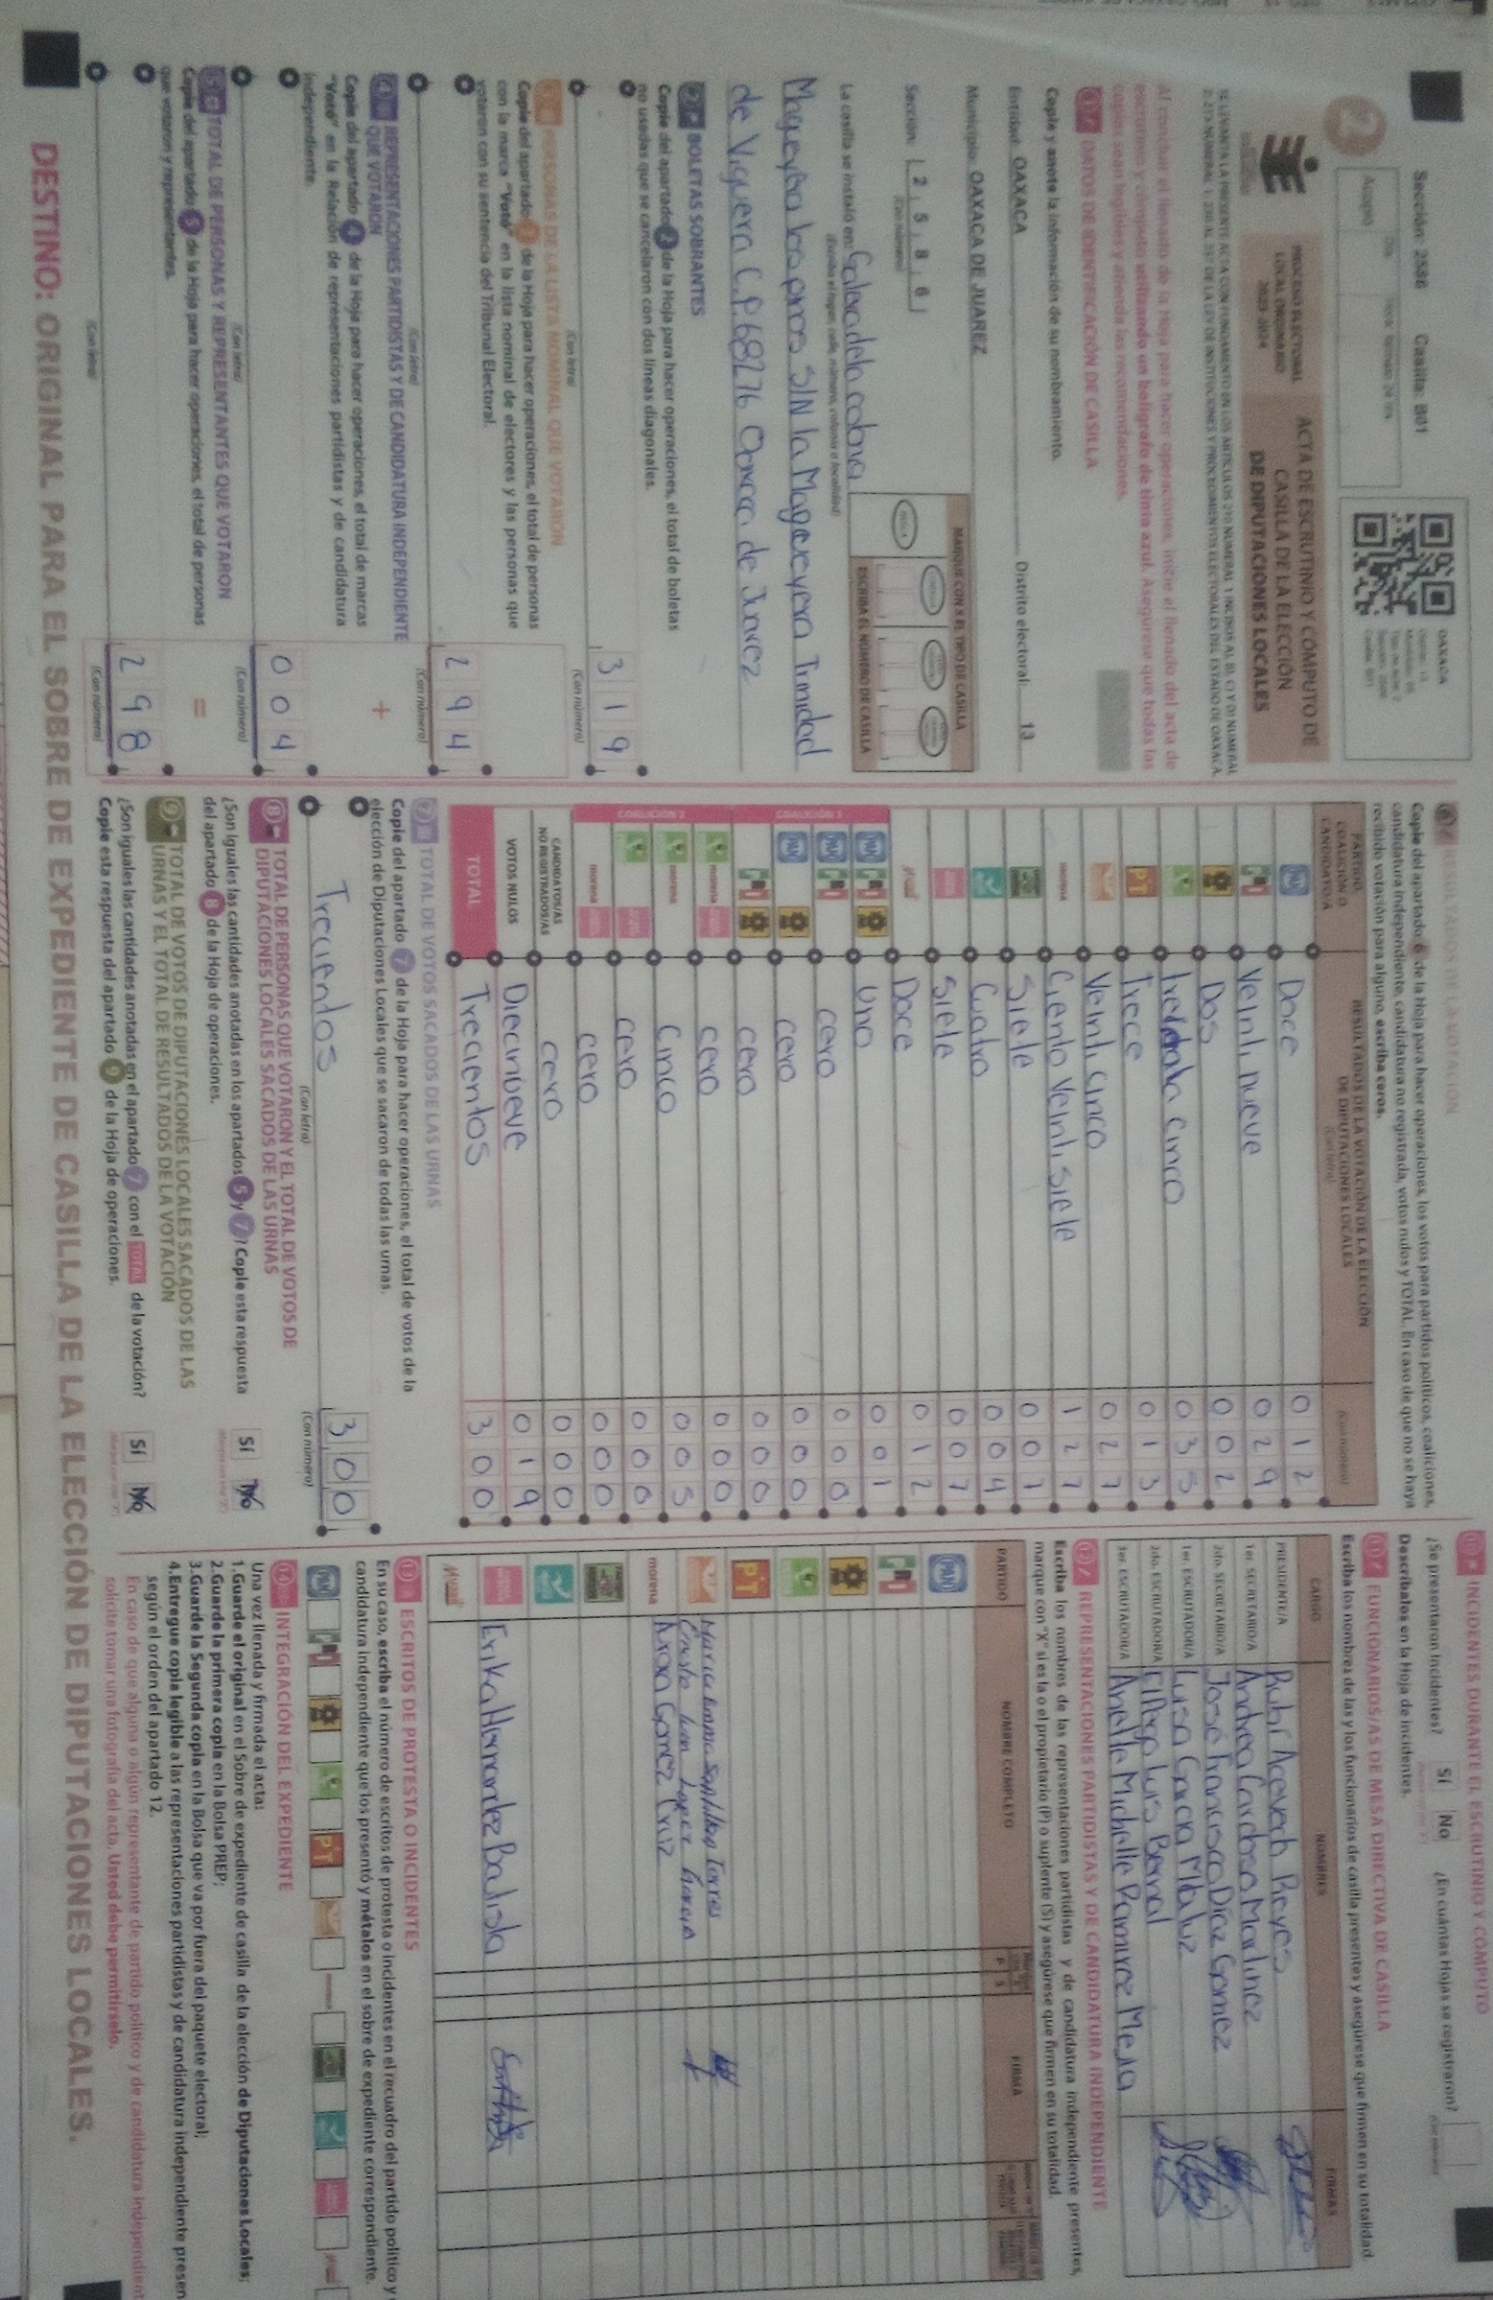 Sección: 2586 Casilla: B01
OAXACA
2
PROCESO ELECTORAL
LOCAL ORDINARIO
2023-2024
ACTA DE ESCRUTINIO Y CÓMPUTO DE
CASILLA DE LA ELECCIÓN
DE DIPUTACIONES LOCALES
Al concluir el llenado de la Hoja para hacer operaciones, inicie el llenado del acta de
escrutinio y cómputo utilizando un bolígrafo de tinta azul. Asegúrese que todas las
copias sean legibles y atienda las recomendaciones.
1 DATOS DE IDENTIFICACIÓN DE CASILLA
Copie y anote la información de su nombramiento.
Entidad: OAXACA Distrito electoral: 13
Municipio: OAXACA DE JUAREZ
Sección: 2 5 8 6
(Con número)
MARQUE CON X EL TIPO DE CASILLA
ESCRIBA EL NÚMERO DE CASILLA
La casilla se instaló en: Galera de la cabria
(Escriba el lugar, calle, número, colonia o localidad)
Magueyera los pinos S/N la Magueyera Trinidad
de Viguera C.P. 68276 Oaxaca de Juarez
2 BOLETAS SOBRANTES
Copie del apartado 2 de la Hoja para hacer operaciones, el total de boletas
no usadas que se cancelaron con dos líneas diagonales.
319
(Con letra) (Con número)
3 PERSONAS DE LA LISTA NOMINAL QUE VOTARON
Copie del apartado 3 de la Hoja para hacer operaciones, el total de personas
con la marca "Votó" en la lista nominal de electores y las personas que
votaron con su sentencia del Tribunal Electoral.
294
(Con letra) (Con número)
4 REPRESENTACIONES PARTIDISTAS Y DE CANDIDATURA INDEPENDIENTE
QUE VOTARON
+
Copie del apartado 4 de la Hoja para hacer operaciones, el total de marcas
"Votó" en la Relación de representaciones partidistas y de candidatura
independiente.
004
(Con letra) (Con número)
5 TOTAL DE PERSONAS Y REPRESENTANTES QUE VOTARON
=
Copie del apartado 5 de la Hoja para hacer operaciones, el total de personas
que votaron y representantes.
298
(Con letra) (Con número)
6 RESULTADOS DE LA VOTACIÓN
Copie del apartado 6 de la Hoja para hacer operaciones, los votos para partidos políticos, coaliciones,
candidatura independiente, candidatura no registrada, votos nulos y TOTAL. En caso de que no se haya
recibido votación para alguno, escriba ceros.
PARTIDO, COALICIÓN O CANDIDATO/A
RESULTADOS DE LA VOTACIÓN DE LA ELECCIÓN
DE DIPUTACIONES LOCALES
(Con letra) (Con número)
PAN Doce 012
PRI Veinti nueve 029
Dos 002
treinta cinco 035
PT Trece 013
Veinti cinco 027
morena Ciento Veinti siete 127
Siete 007
Cuatro 004
Siete 007
Doce 012
COALICIÓN 1
PAN PRI Uno 001
PAN PRI cero 000
PAN cero 000
PRI cero 000
COALICIÓN 2
morena cero 000
morena Cinco 005
cero 000
morena cero 000
CANDIDATOS/AS
NO REGISTRADOS/AS cero 000
VOTOS NULOS Diecinueve 019
TOTAL Trecientos 300
7 TOTAL DE VOTOS SACADOS DE LAS URNAS
Copie del apartado 7 de la Hoja para hacer operaciones, el total de votos de la
elección de Diputaciones Locales que se sacaron de todas las urnas.
Trecientos 300
(Con letra) (Con número)
8 TOTAL DE PERSONAS QUE VOTARON Y EL TOTAL DE VOTOS DE
DIPUTACIONES LOCALES SACADOS DE LAS URNAS
¿Son iguales las cantidades anotadas en los apartados 5 y 7? Copie esta respuesta
del apartado 8 de la Hoja de operaciones.
Sí No
9 TOTAL DE VOTOS DE DIPUTACIONES LOCALES SACADOS DE LAS
URNAS Y EL TOTAL DE RESULTADOS DE LA VOTACIÓN
¿Son iguales las cantidades anotadas en el apartado 7 con el TOTAL de la votación?
Copie esta respuesta del apartado 9 de la Hoja de operaciones.
Sí No
10 INCIDENTES DURANTE EL ESCRUTINIO Y CÓMPUTO
¿Se presentaron incidentes? Sí No ¿En cuántas Hojas se registraron?
Descríbalos en la Hoja de incidentes.
11 FUNCIONARIOS/AS DE MESA DIRECTIVA DE CASILLA
Escriba los nombres de las y los funcionarios de casilla presentes y asegúrese que firmen en su totalidad.
CARGO NOMBRES FIRMAS
PRESIDENTE/A Rubí Acevedo Reyes
1er. SECRETARIO/A Andrea Cardoza Martinez
2do. SECRETARIO/A José Francisco Díaz Gomez
1er. ESCRUTADOR/A Luisa Garcia
2do. ESCRUTADOR/A Luis Bernal
3er. ESCRUTADOR/A Anette Michelle Ramirez Mejia
12 REPRESENTACIONES PARTIDISTAS Y DE CANDIDATURA INDEPENDIENTE
Escriba los nombres de las representaciones partidistas y de candidatura independiente presentes,
marque con "X" si es la o el propietario (P) o suplente (S) y asegúrese que firmen en su totalidad.
PARTIDO NOMBRE COMPLETO P S FIRMA
PAN
PRI
PT
Torres
Lopez Garcia
morena Gomez Cruz
Erika Hernandez Batista
13 ESCRITOS DE PROTESTA O INCIDENTES
En su caso, escriba el número de escritos de protesta o incidentes en el recuadro del partido político y
candidatura independiente que los presentó y métalos en el sobre de expediente correspondiente.
PAN PRI PT
14 INTEGRACIÓN DEL EXPEDIENTE
Una vez llenada y firmada el acta:
1.Guarde el original en el Sobre de expediente de casilla de la elección de Diputaciones Locales;
2.Guarde la primera copia en la Bolsa PREP;
3.Guarde la Segunda copia en la Bolsa que va por fuera del paquete electoral;
4.Entregue copia legible a las representaciones partidistas y de candidatura independiente presen
según el orden del apartado 12.
En caso de que alguna o algún representante de partido político y de candidatura independient
solicite tomar una fotografía del acta, Usted debe permitírselo.
DESTINO: ORIGINAL PARA EL SOBRE DE EXPEDIENTE DE CASILLA DE LA ELECCIÓN DE DIPUTACIONES LOCALES.